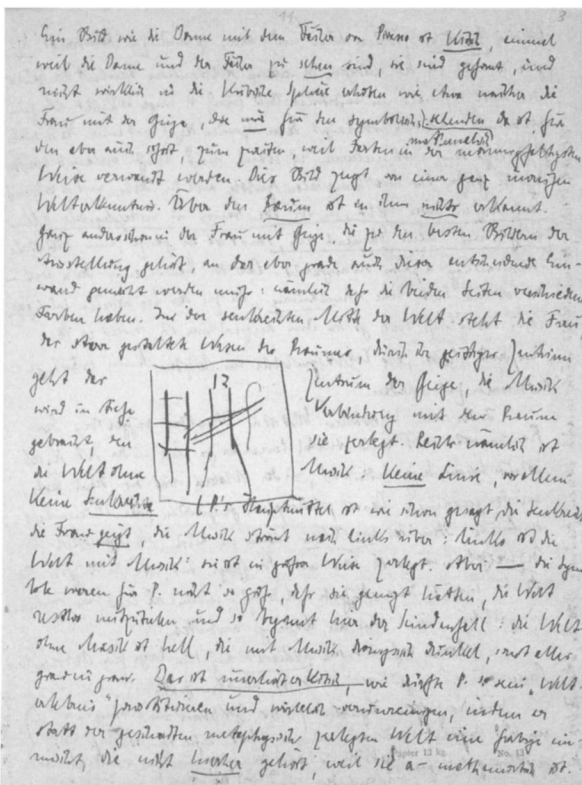 11 3
Ein Bild wie die Dame mit dem Fächer von Picasso ist Kitsch, einmal
weil die Dame und der Fächer zu sehen sind, sie sind geformt, und
nicht wirklich in die Sphäre erhoben wie etwa nachher die
Frau mit der Geige, die nur für den symbolisch da ist für
den aber auch schon, zum zweiten, weil Farben in der mannigfaltigsten
Weise verwandt werden. Dies Bild zeugt von einer ganz
Welterkenntnis. Über den Raum ist in ihm nichts erkannt.
Ganz anders schon in der Frau mit Geige, die zu den besten Bildern der
Ausstellung gehört, an der aber grade auch dieser entscheidende Ein-
wand gemacht werden muss: nämlich dass die beiden Seiten verschiedene
Farben haben. In der senkrechten Mitte der Welt steht die Frau,
der gestaltete Wesen des Raumes, durch ihr geistiges Zentrum
geht das Zentrum der Geige, die Musik
wird in Verbindung mit dem Raume
gebracht, den sie zerlegt. Rechts nämlich ist
12
die Welt ohne Musik: keine Linse, vor allem
keine Senkrechte (P.'s Hauptmittel ist wie schon gesagt, die Senkrechte)
die Frau geigt, die Musik strömt nach links über: links ist die
Welt mit Musik: sie ist in Weise zerlegt. Aber — die Sym-
bole waren für P. nicht so groß, dass sie genügt hätten, die Welt
restlos auszudrücken und so beginnt hier der Sündenfall: die Welt
ohne Musik ist hell, die mit Musik dionysisch dunkel, sonst alles
grau in grau. Das ist unerhörter Kitsch, wie dürfte P. so sein „Welt-
erlebnis" prostituieren und wirklich verunreinigen, indem er
statt der metaphysisch zerlegten Welt eine farbige
die nicht hierher gehört, weil sie a-mathematisch ist.
Papier 13 kg No. 13